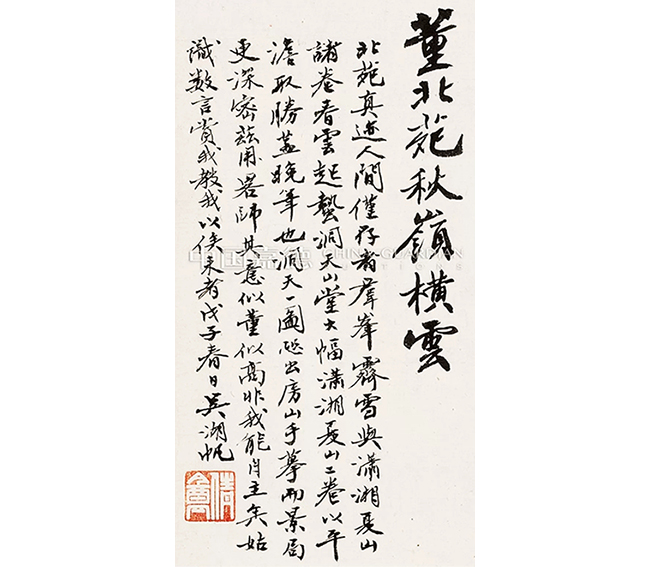 董北苑秋嶺橫雲
北苑真迹人間僅存者群峯霽雪與瀟湘夏山
諸卷看雲起蟄洞天山堂大幅瀟湘夏山二卷以平
澹取勝蓋晚筆也洞天一圖趂出房山手摹而景局
更深密茲用略師其意似董似高非我能自主矣姑
識数言賞我教我以俟来者戊子春日吴湖帆
倩盦
中国嘉德 CHINA GUARDIAN